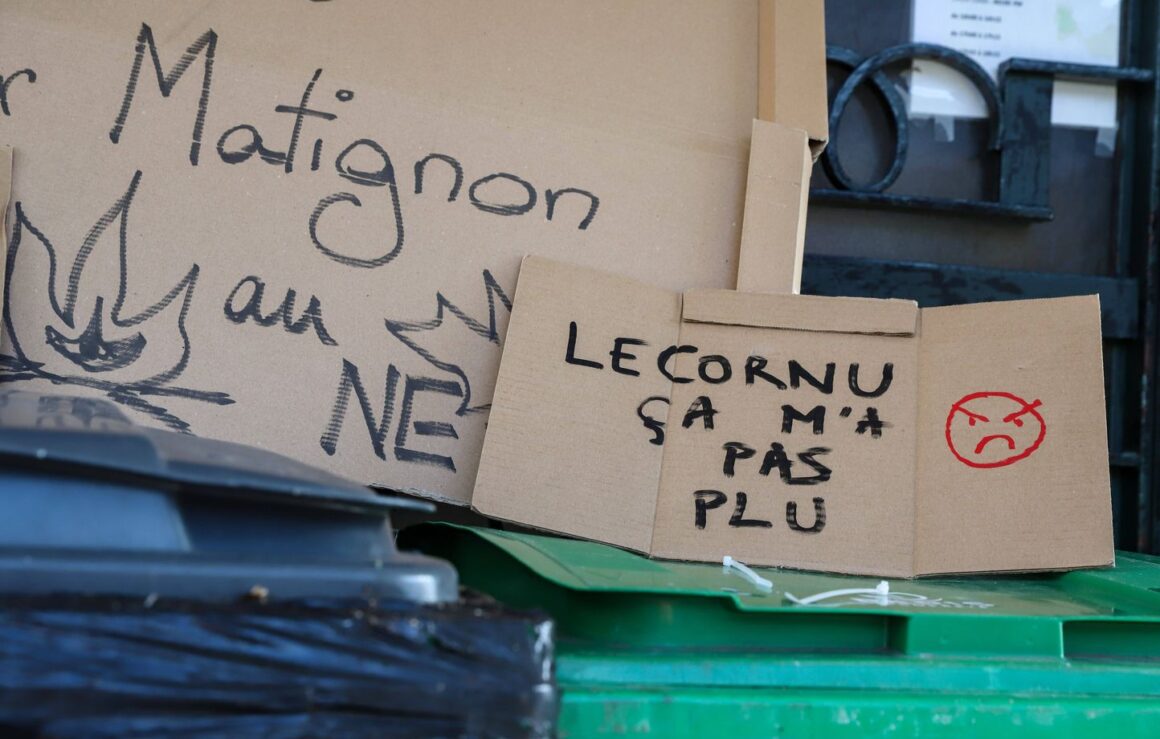 r Matignon
au
NE
LECORNU
çA M'A
PAS
PLU